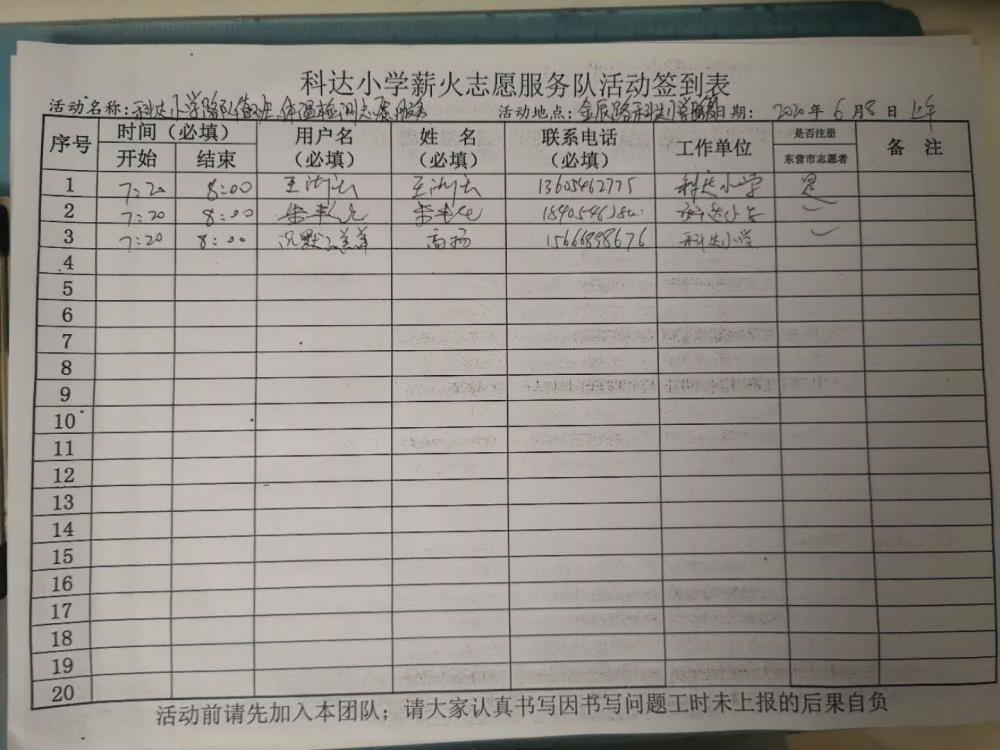 科达小学薪火志愿服务队活动签到表
活动名称：科达小学 体温检测志愿服务 活动地点：金辰路科达小学 日期： 2020年6月8日 上午
序号 时间（必填） 用户名（必填） 姓 名（必填） 联系电话（必填） 工作单位 是否注册东营市志愿者 备 注
开始 结束
1 7:20 8:00 13605462775 科达小学 是
2 7:20 8:00 科达小学
3 7:20 8:00 沉默 羔羊 高扬 15666898676 科达小学
4
5
6
7
8
9
10
11
12
13
14
15
16
17
18
19
20
活动前请先加入本团队；请大家认真书写因书写问题工时未上报的后果自负